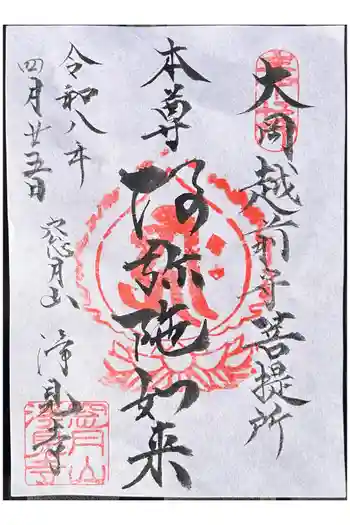 大岡越前守菩提所
本尊
阿弥陀如来
令和八年
四月廿五日
窓月山 浄見寺
窓月山
浄見寺